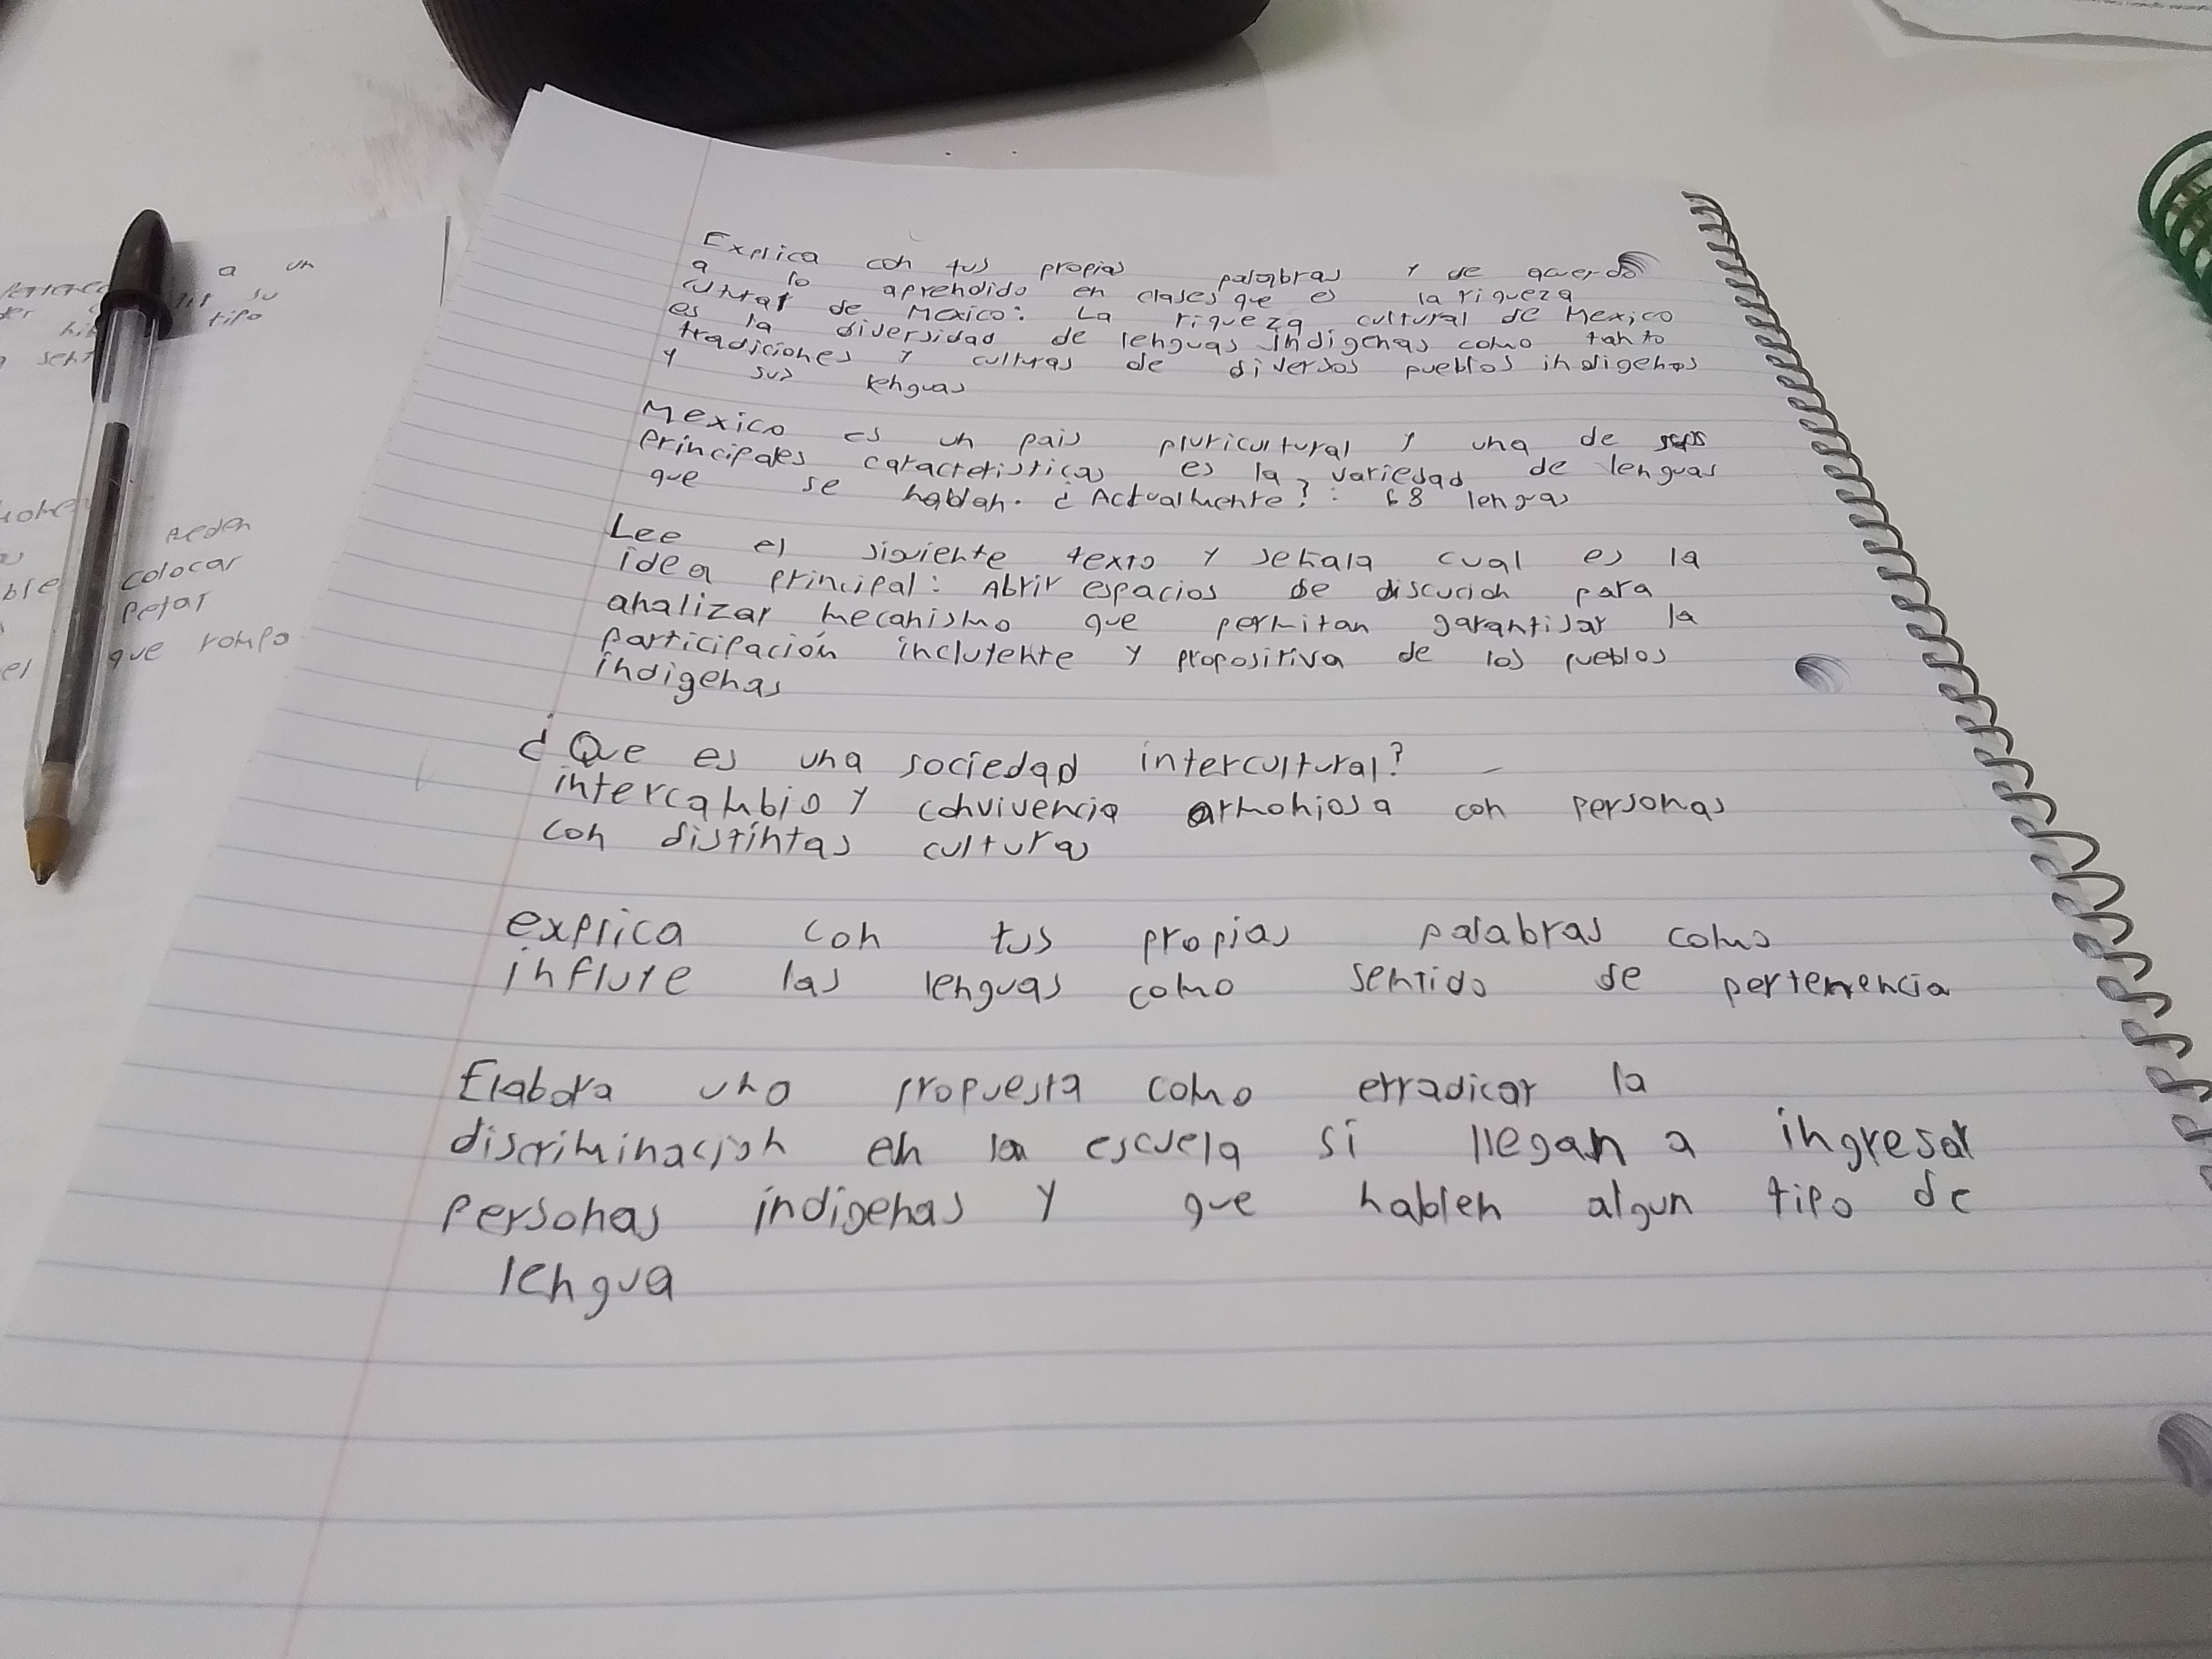 Explica con tus propias palabras y de acuerdo
a lo aprendido en clases que es la riqueza
cultural de Mexico: La riqueza cultural de Mexico
es la diversidad de lenguas indigenas como tanto
tradiciones y culturas de diversos pueblos indigenas
y sus lenguas
Mexico es un pais pluricultural y una de sus
principales caracteristicas es la variedad de lenguas
que se hablan. ¿Actualmente?: 68 lengas
Lee el siguiente texto y señala cual es la
idea principal: Abrir espacios de discucion para
analizar mecanismo que permitan garantisar la
participación incluyente y propositiva de los pueblos
indigenas
¿Que es una sociedad intercultural?
intercambio y convivencia armoniosa con personas
con distintas culturas
explica con tus propias palabras como
influye las lenguas como sentido de pertenencia
Elabora una propuesta como erradicar la
discriminacion en la escuela si llegan a ingresar
personas indigenas y que hablen algun tipo de
lengua
a un
su
tipo
colocar
que rompo